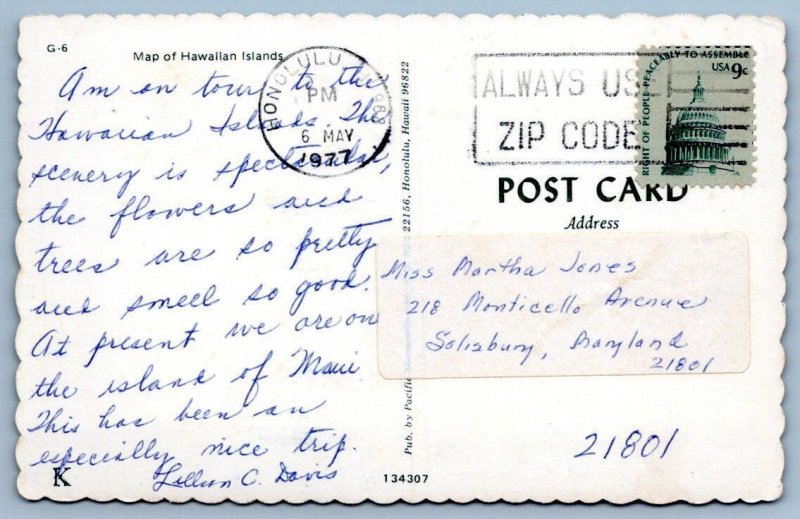 G-6
Map of Hawaiian Islands
Am on tour to the
Hawaiian Islands. The
scenery is spectacular,
the flowers and
trees are so pretty
and smell so good.
At present we are on
the island of Maui.
This has been an
especially nice trip.
Lillian C. Davis
K
HONOLULU
PM
6 MAY
1977
Pub. by Pacific 22156, Honolulu, Hawaii 96822
134307
ALWAYS USE
ZIP CODE
RIGHT OF PEOPLE PEACEABLY TO ASSEMBLE
USA 9c
POST CARD
Address
Miss Martha Jones
218 Monticello Avenue
Salisbury, Maryland
21801
21801